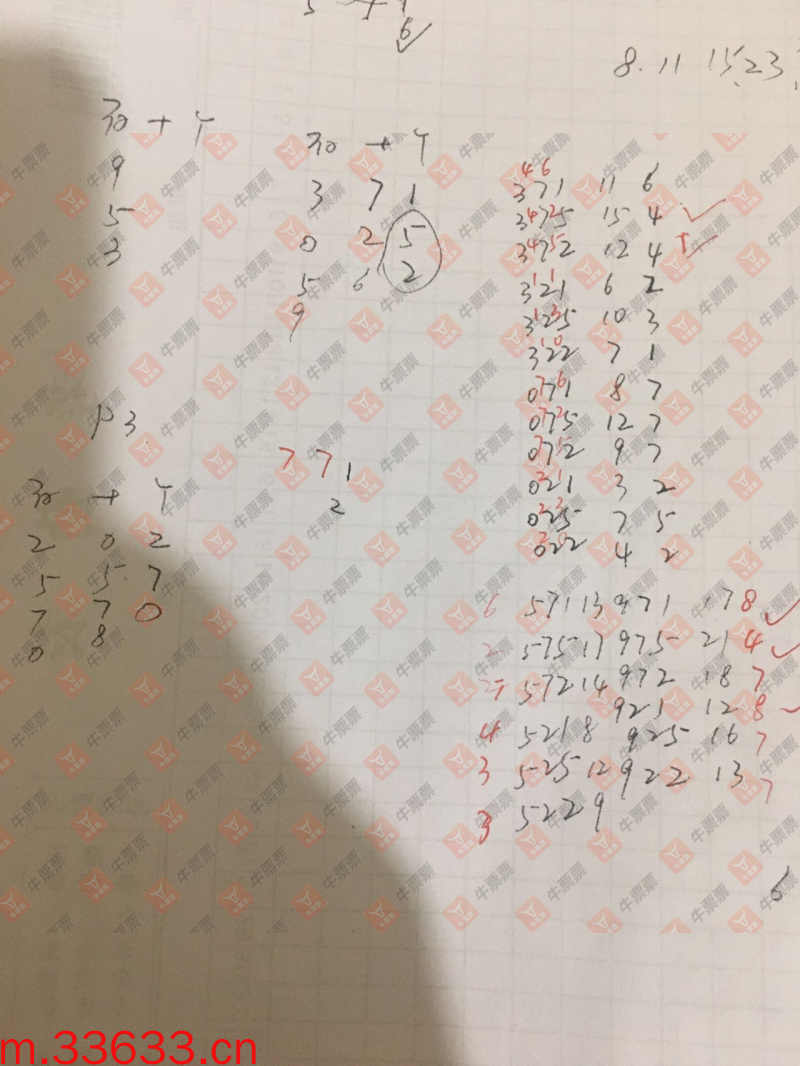 6
8.11 15.23
+
9
5
3
+
3 7 1
0 2 5
5 6 2
9
4 6
371 11 6
3475 15 4
3752 12 4
321 6 2
325 10 3
322 7 1
071 8 7
075 12 7
072 9 7
021 3 2
025 7 5
022 4 2
P3
7 7 1
2
+
2 0 2
5 5 7
7 7 0
0 8
6 571 13 971 17 8
2 575 17 975 21 4
572 14 972 18 7
921 12 8
4 521 8 925 16 7
3 525 12 922 13 7
3 522 9
6
牛票票
m.33633.cn